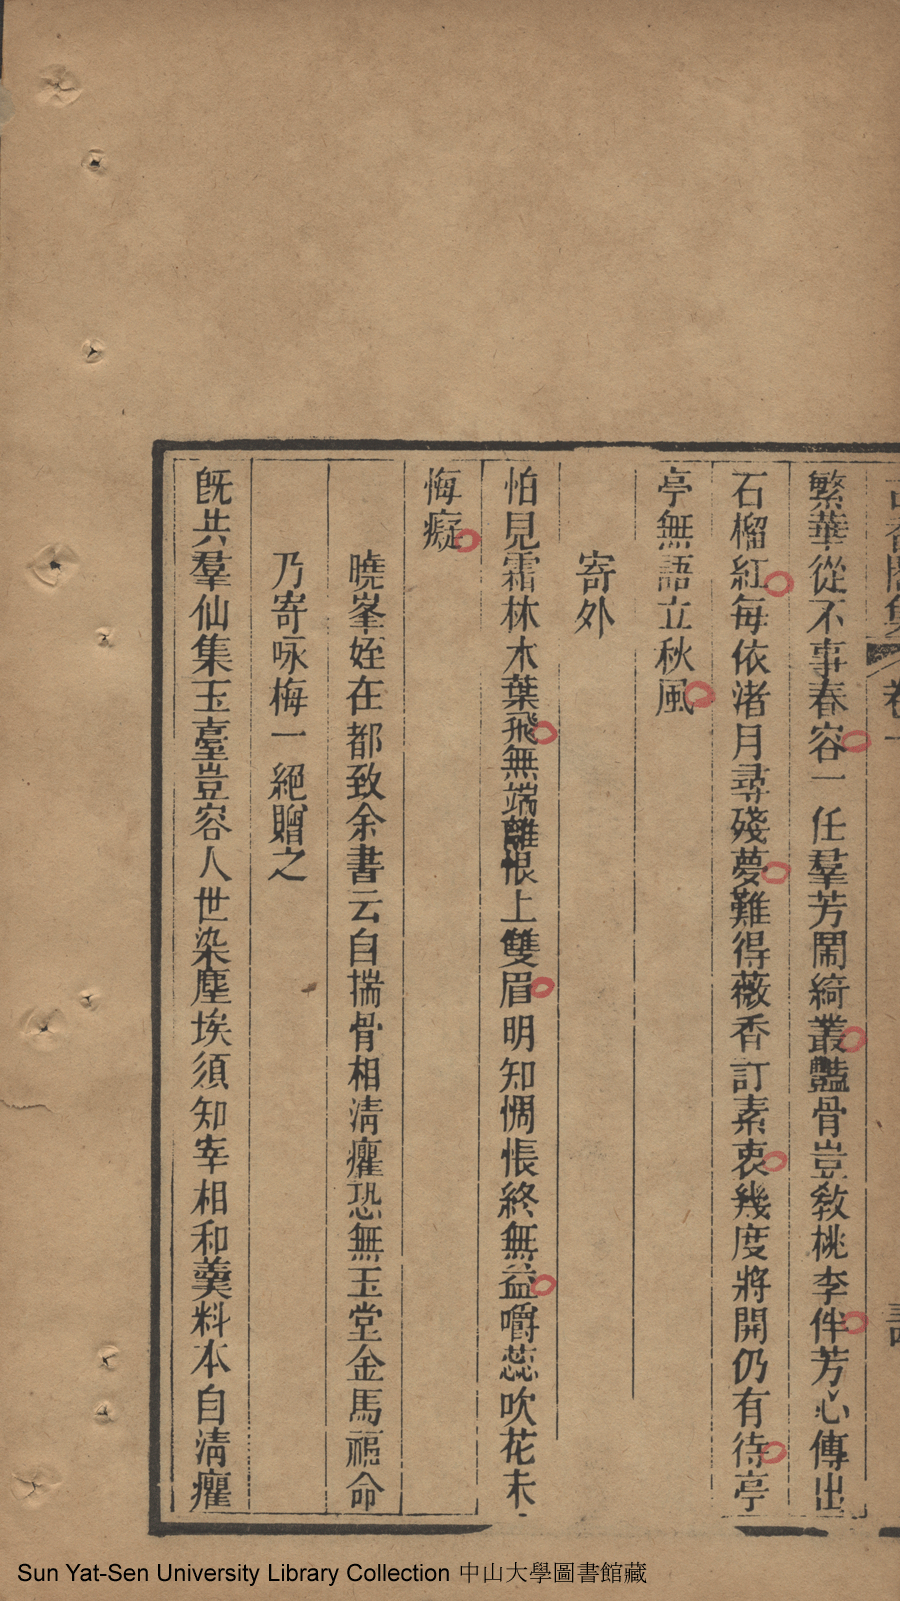 古香閣集 卷一 詩
繁華從不事春容一任羣芳鬧綺叢豔骨豈教桃李伴芳心傳出
石榴紅每依渚月尋殘夢難得薇香訂素衷幾度將開仍有待亭
亭無語立秋風
寄外
怕見霜林木葉飛無端離恨上雙眉明知惆悵終無益嚼蕊吹花未
悔癡
曉峯姪在都致余書云自揣骨相清癯恐無玉堂金馬福命
乃寄咏梅一絕贈之
旣共羣仙集玉臺豈容人世染塵埃須知宰相和羹料本自清癯
Sun Yat-Sen University Library Collection 中山大學圖書館藏